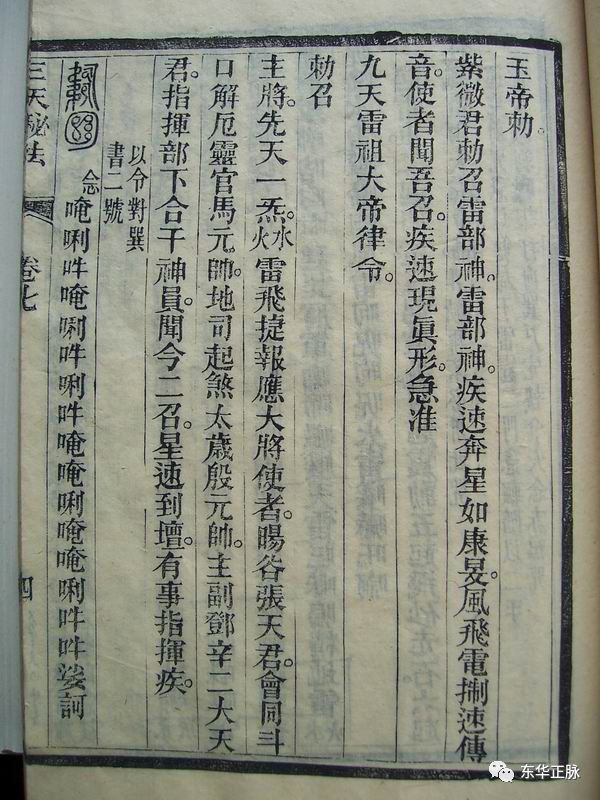 玉帝勅。
紫微君勅召雷部神。雷部神。疾速奔星如康旻。風飛電捌速傳
音。使者聞吾召。疾速現眞形。急准
九天雷祖大帝律令。
勅召
主將。先天一炁。水火雷飛捷報應大將使者。暘谷張天君。會同斗
口解厄靈官馬元帥。地司起煞太歲殷元帥。主副鄧辛二大天
君。指揮部下合干神員。聞今二召。星速到壇。有事指揮疾。
以令對巽
書二號
念唵唎吽唵唎吽唎吽唵唵唎唵唵唎吽吽娑訶
三天秘法 卷七 四
东华正脉